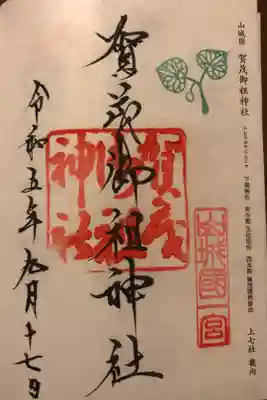 山城国 賀茂御祖神社
下鴨神社
上七社 畿内
山城國一宮
賀茂御祖神社
賀茂御祖神社
令和五年九月十七日